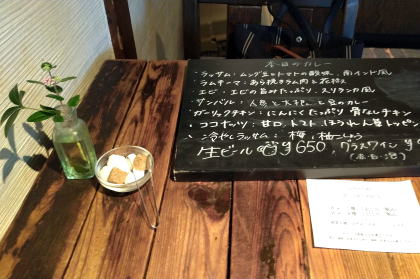 本日のカレー
・ラッサム：ムング豆とトマトの酸味，南インド風
・ラムキーマ：あら挽きラム肉と花椒
・エビ：エビの旨みたっぷり，スリランカ風
・サンバル：人参と大根と豆のカレー
・ガーリックチキン：にんにくたっぷり 骨なしチキン
・ココナッツ：甘口 トマト，ほうれん草トッピン
・冷やしラッサム：梅，柚こしょう
生ビール ¥650，グラスワイン ¥
(赤・白・泡)